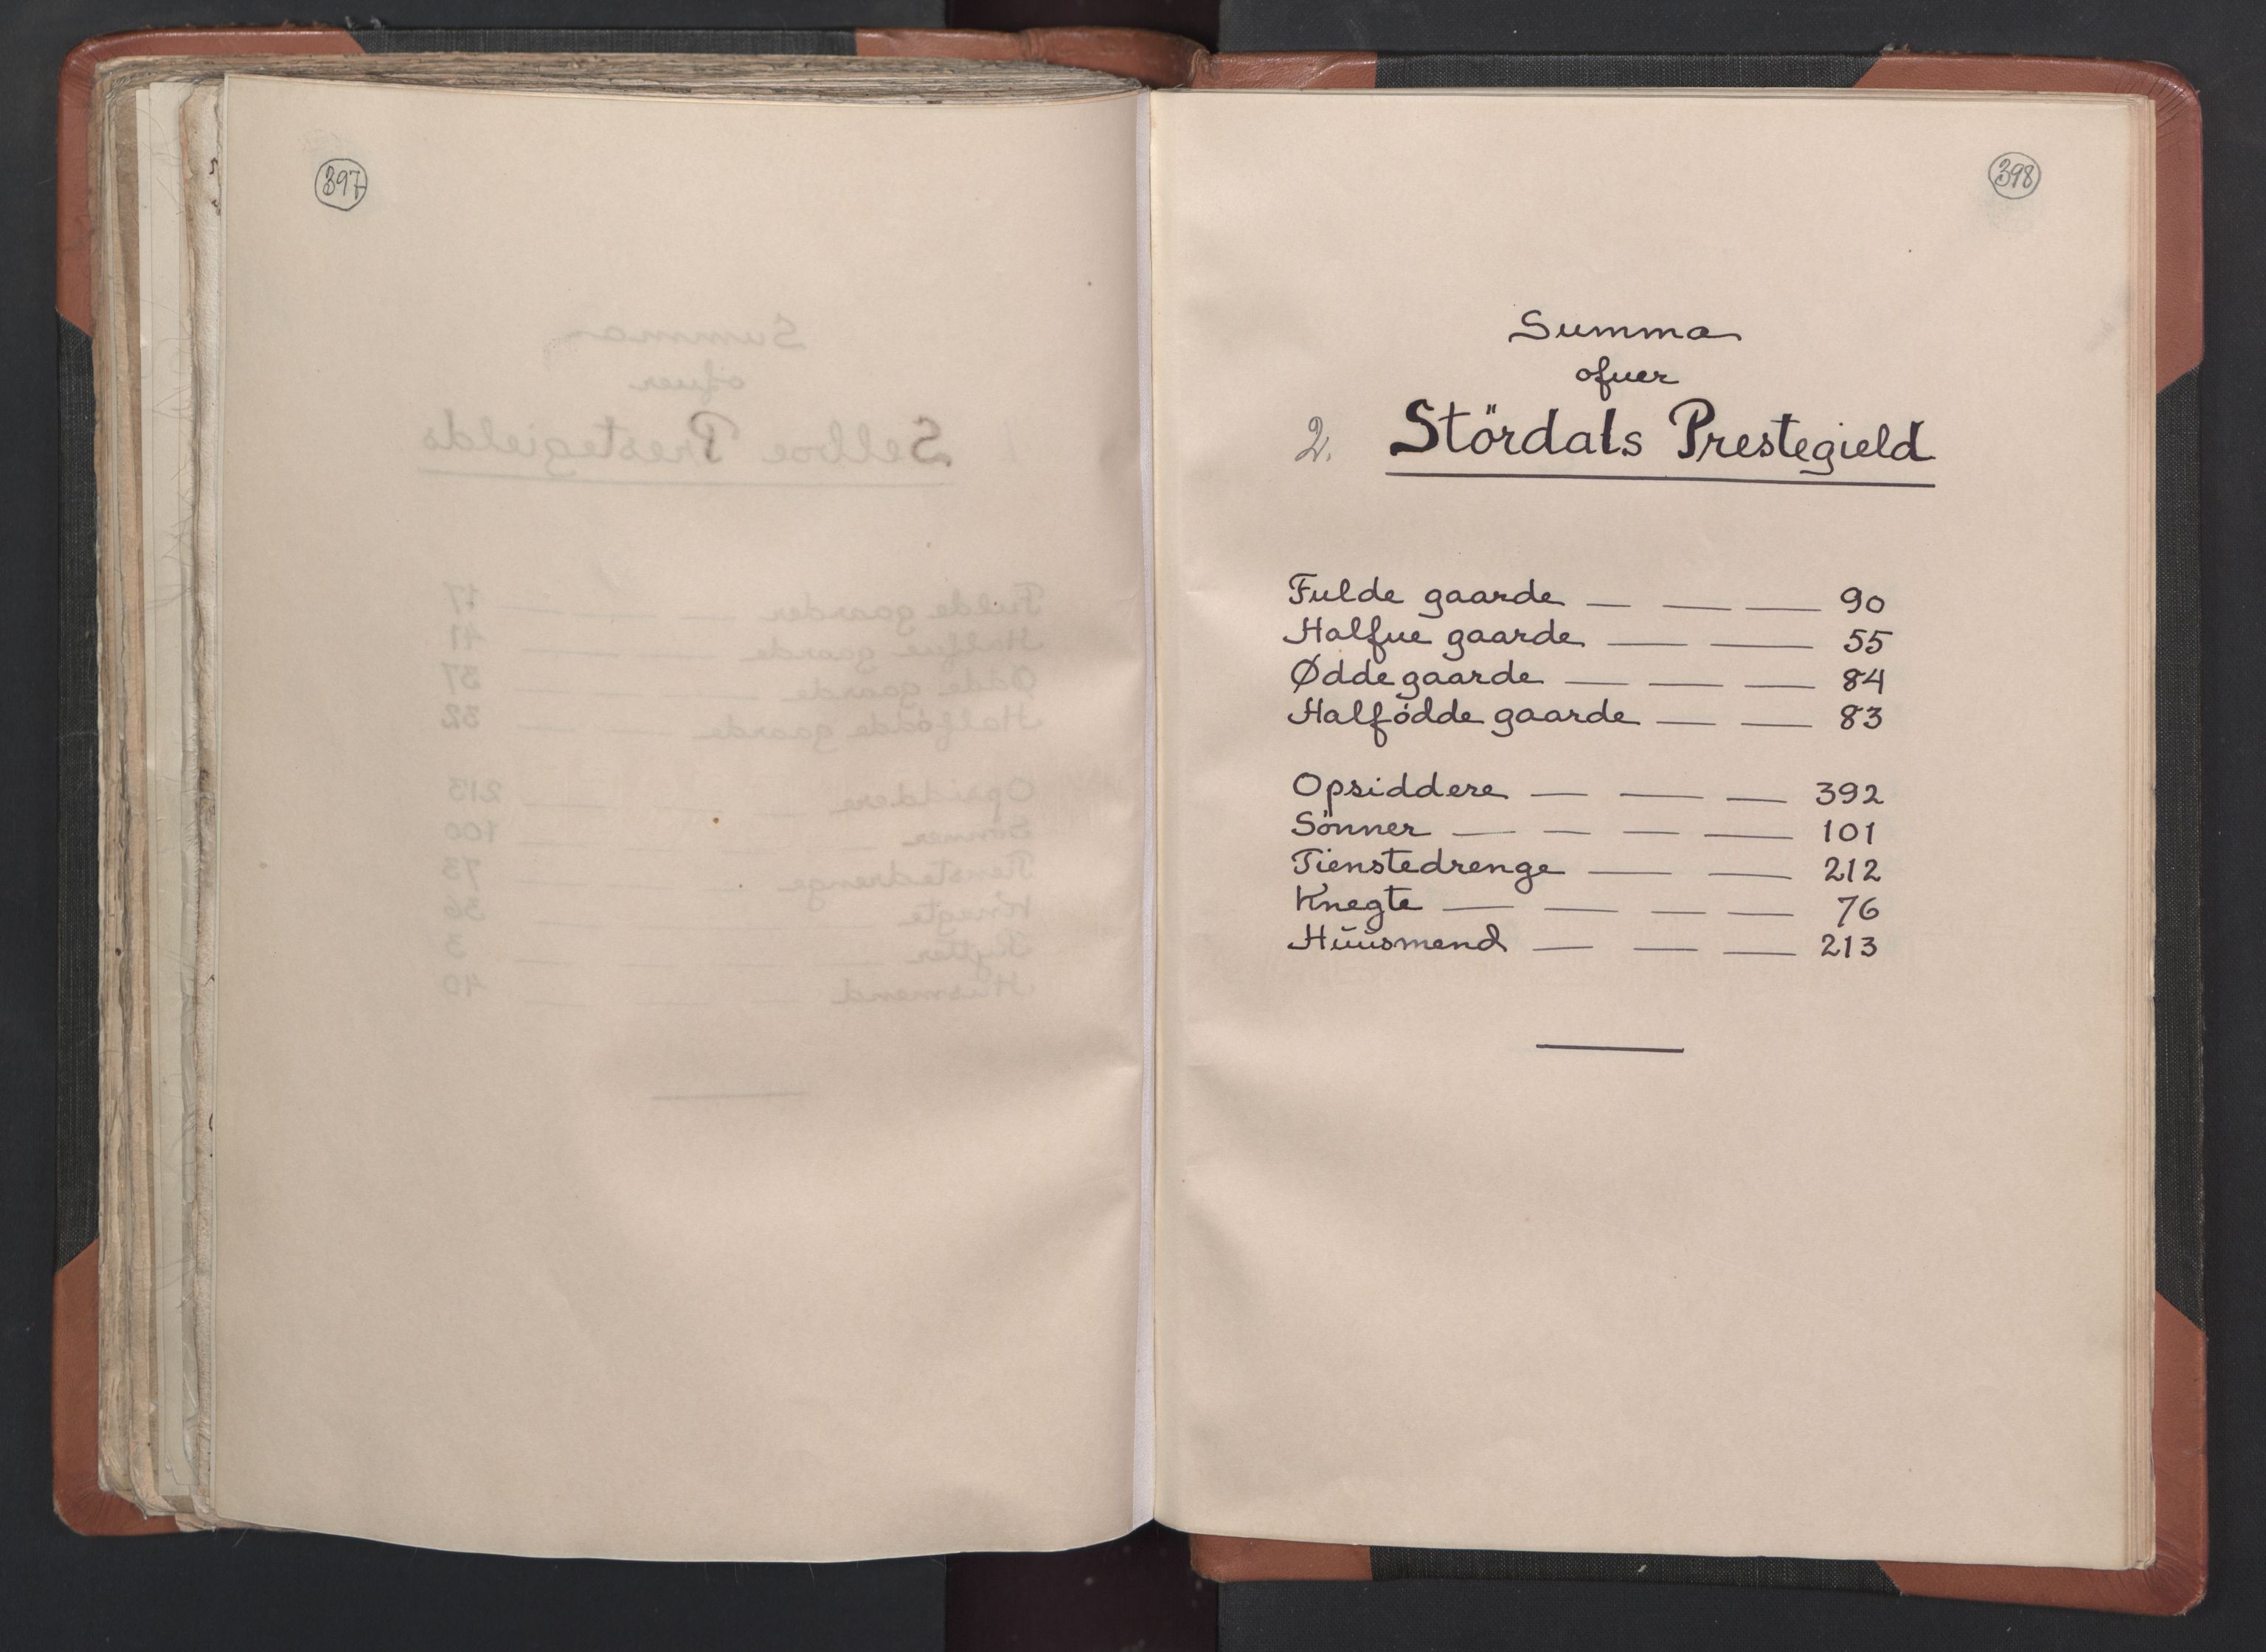 397
398
Summa
ofuer
2. Stördals Prestegield
Fulde gaarde — — — 90
Halfue gaarde — — 55
Ødde gaarde — — — 84
Halfødde gaarde — — 83
Opsiddere — — — 392
Sönner — — — — 101
Tienstedrenge — — 212
Knegte — — — — 76
Huusmend — — — 213